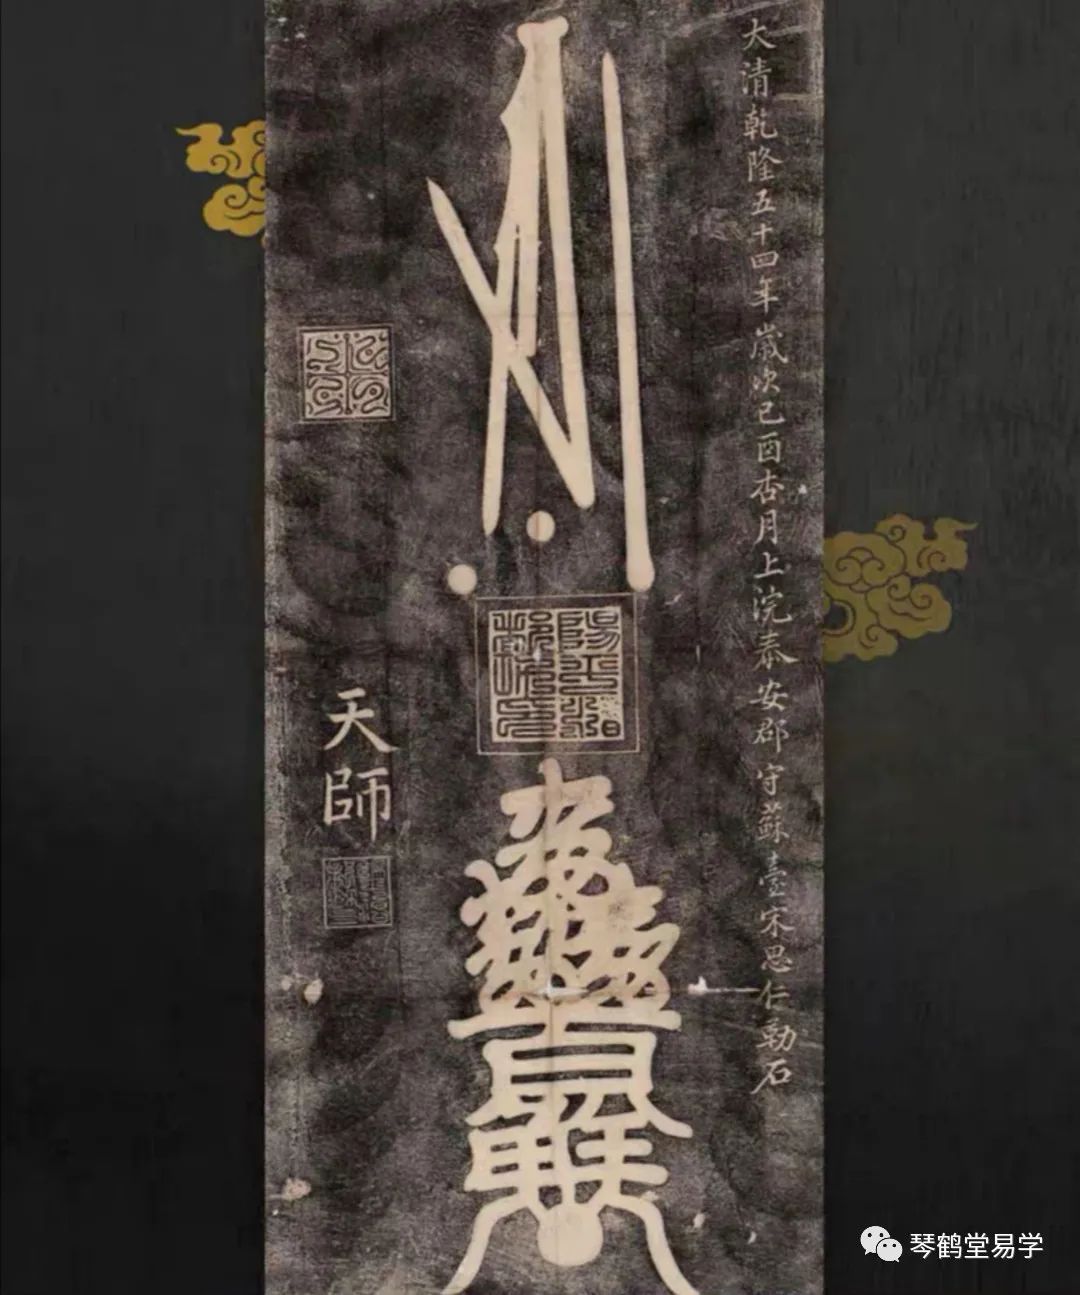 大清乾隆五十四年歲次己酉杏月上浣泰安郡守蘇臺宋思仁勒石
陽平治都功印
天師
琴鹤堂易学